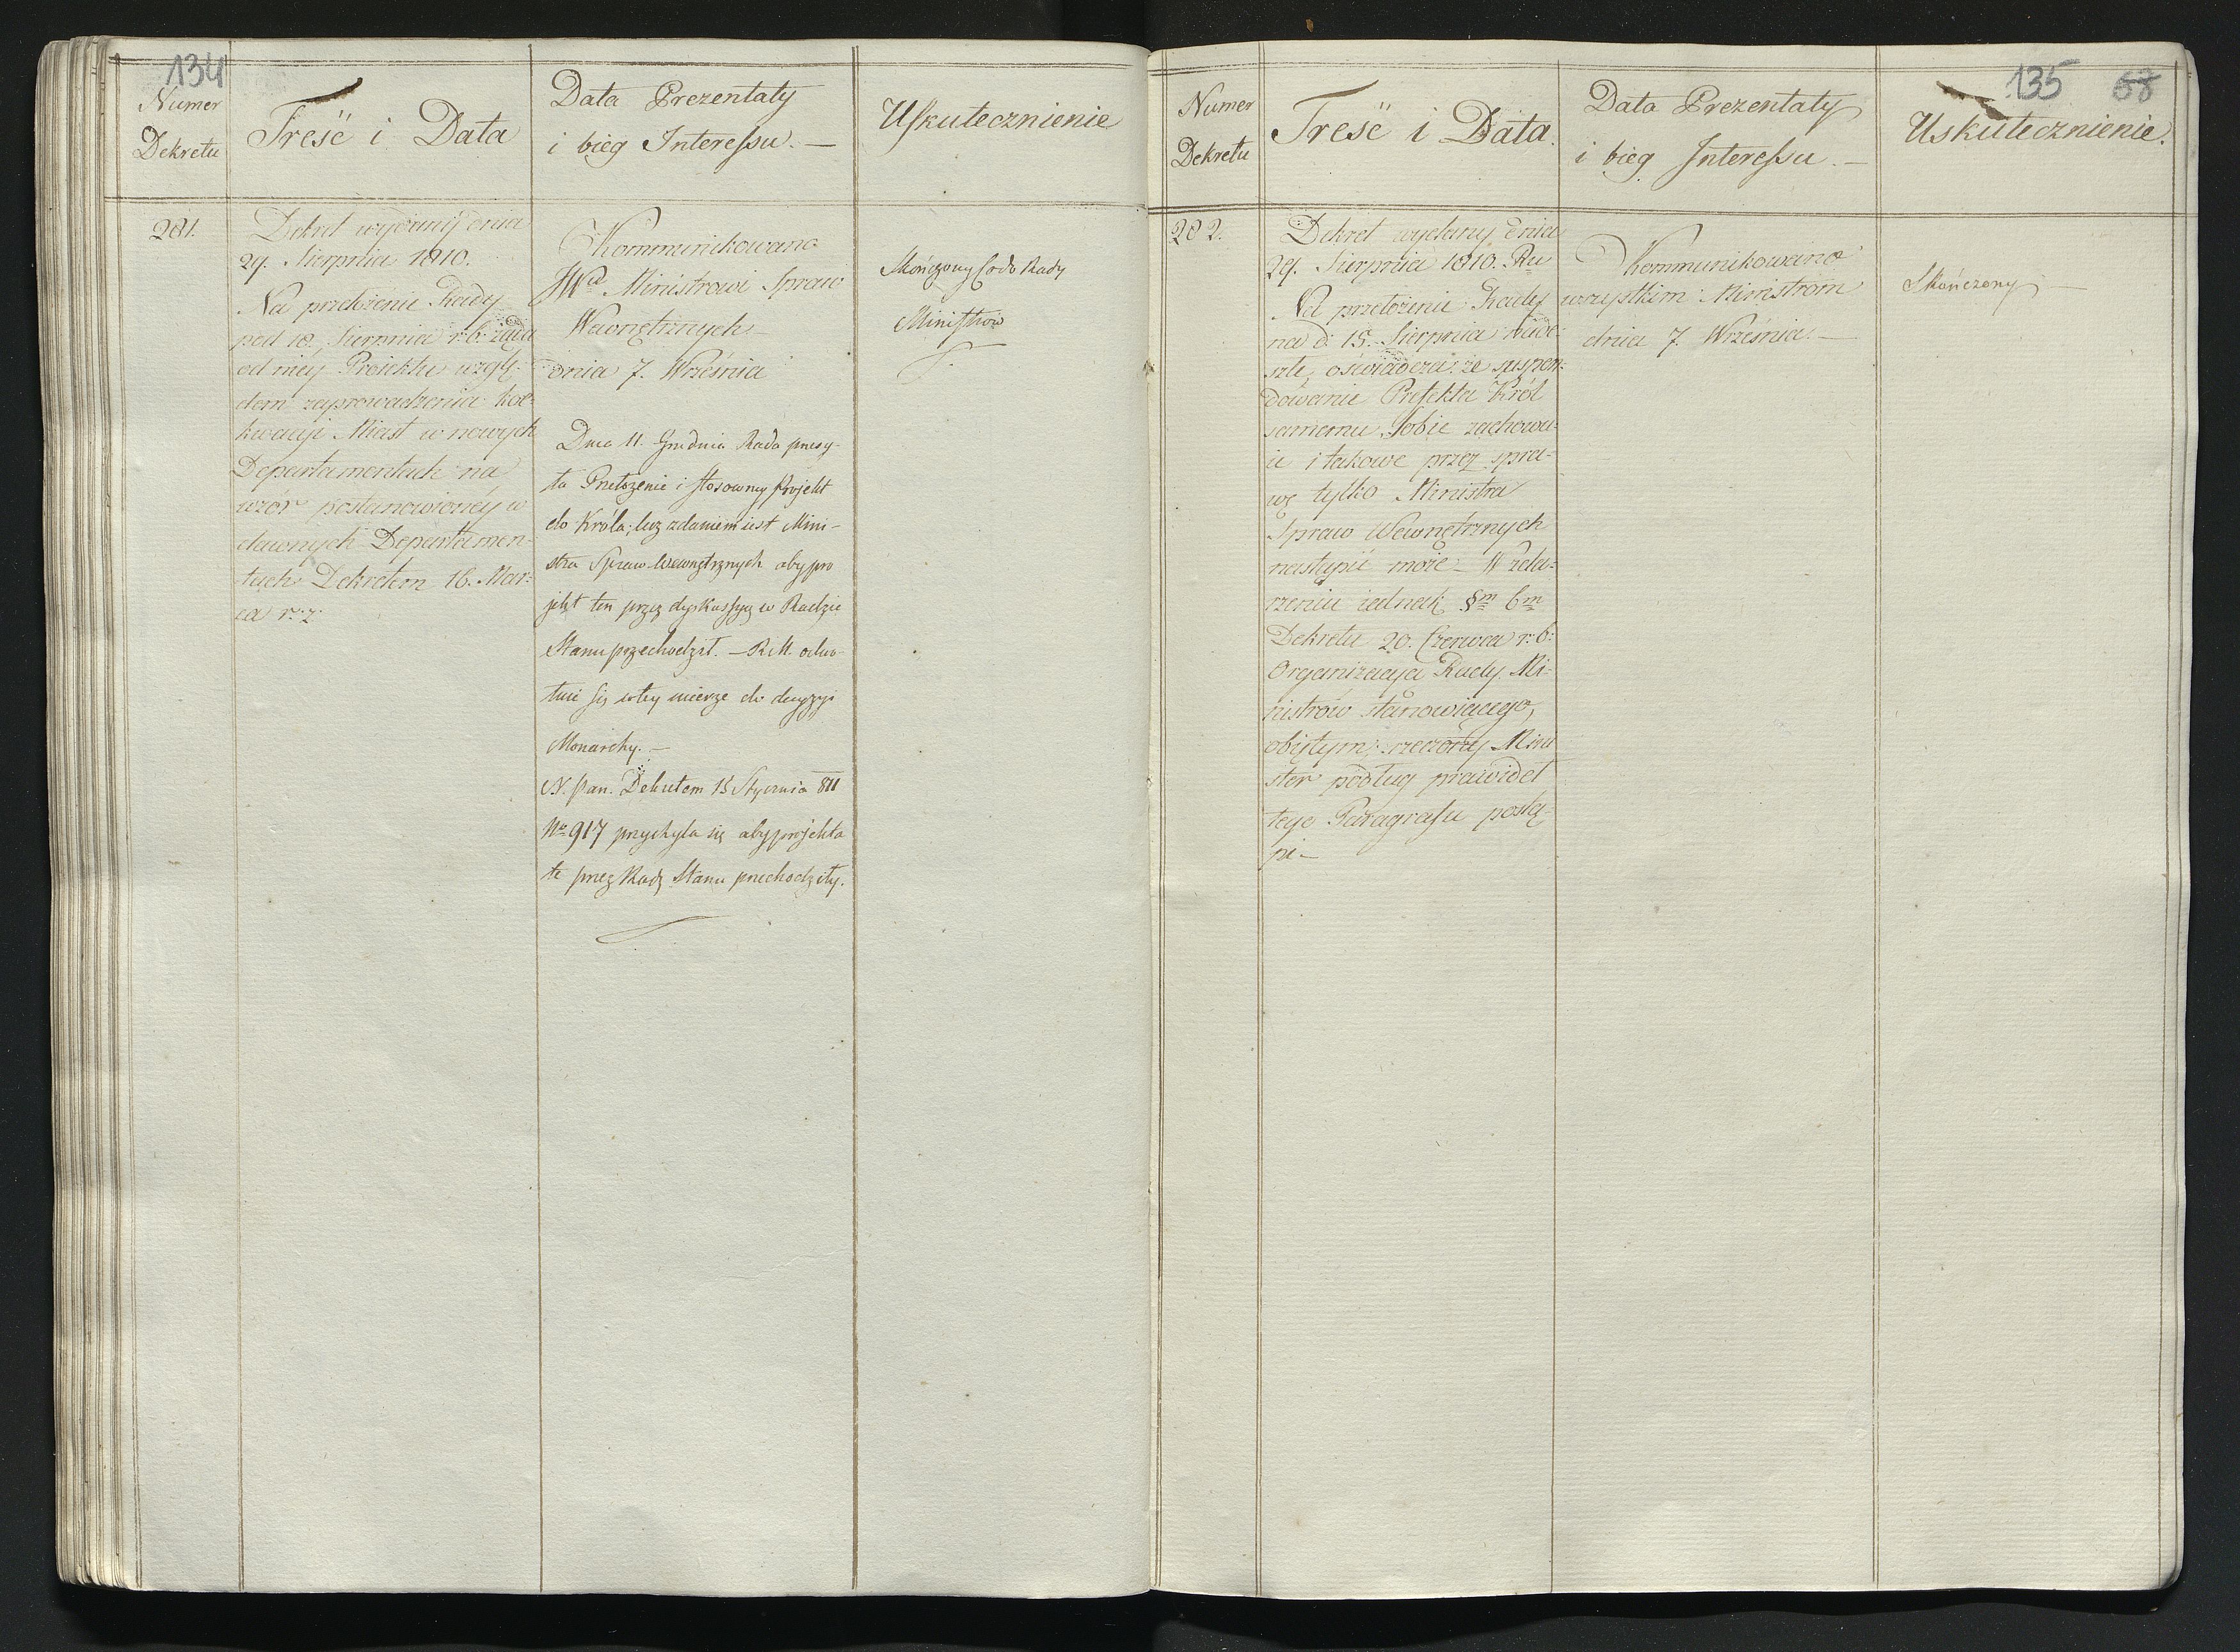 134
Numer
Dekretu
Treść i Data
Data Prezentaty
i bieg Interessu. —
Uskutecznienie
281.
Dekret wydany dnia
29. Sierpnia 1810.
Na przełożenie Rady
pod 18. Sierpnia r: b: żąda
od niey Proiektu wzglę-
dem zaprowadzenia kol-
kwacyi Miast w nowych
Departamentach na
wzór postanowioney w
dawnych Departamen-
tach Dekretem 16. Mar-
ca r: z:
Kommunikowano
JWu Ministrowi Spraw
Wewnętrznych —
dnia 7. Września
Dnia 11. Grudnia Rada przesy-
ła Przełożenie i stosowny Projekt
do Króla; lecz zdaniem iest Mini-
stra Spraw Wewnętrznych aby pro
jekt ten przez dyskussyą w Radzie
Stanu przechodził. — R.M. odwo-
łuie się w tey mierze do decyzyi
Monarchy. —
N. Pan. Dekretem 15 Stycznia 811
No 917 przychyla się aby projekta
te przez Radę Stanu przechodziły.
Skończony co do Rady
Ministrów
135 68
Numer
Dekretu
Treść i Data.
Data Prezentaty
i bieg Interessu. —
Uskutecznienie.
282.
Dekret wydany dnia
29. Sierpnia 1810. Ru
Na przełożenie Rady
na d: 15. Sierpnia nade-
szłe, oświadcza: że suspen-
dowanie Prefekta Król
samemu Sobie zachowu-
ie i takowe przez spra-
wę tylko Ministra
Spraw Wewnętrznych
nastąpić może — W zda-
rzeniu iednak §m 6m
Dekretu 20. Czerwca r: b:
Organizacyą Rady Mi-
nistrów stanowiącego,
obiętym; rzeczony Mini
ster podług prawideł
tego Paragrafu postą-
pi —
Kommunikowano
wszystkim Ministrom
dnia 7. Września. —
Skończony —